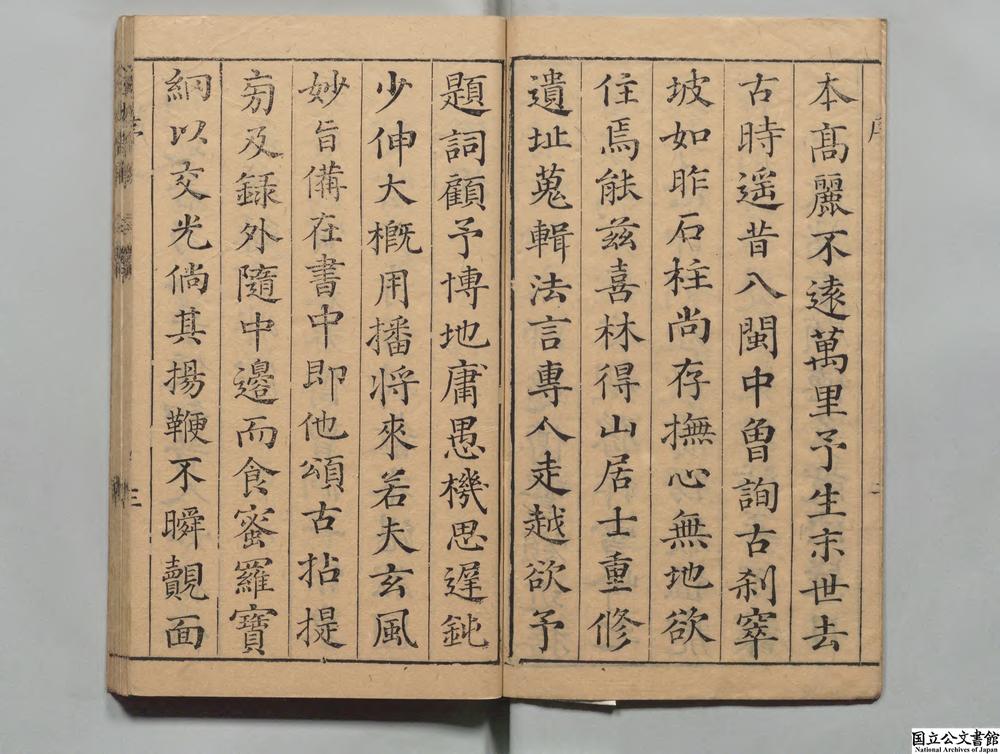 本髙麗不逺萬里予生末世去
古時遥昔入閩中曾詢古刹窣
坡如昨石柱尚存撫心無地欲
住焉能兹喜林得山居士重修
遺址蒐輯法言専人走越欲予
題詞顧予博地庸愚機思遅鈍
少伸大槪用播将來若夫玄風
妙旨備在書中即他頌古拈提
㫄及録外隨中邉而食蜜羅寶
綱以交光倘其揚鞭不瞬覿面
序
二
三
国立公文書館
National Archives of Japan